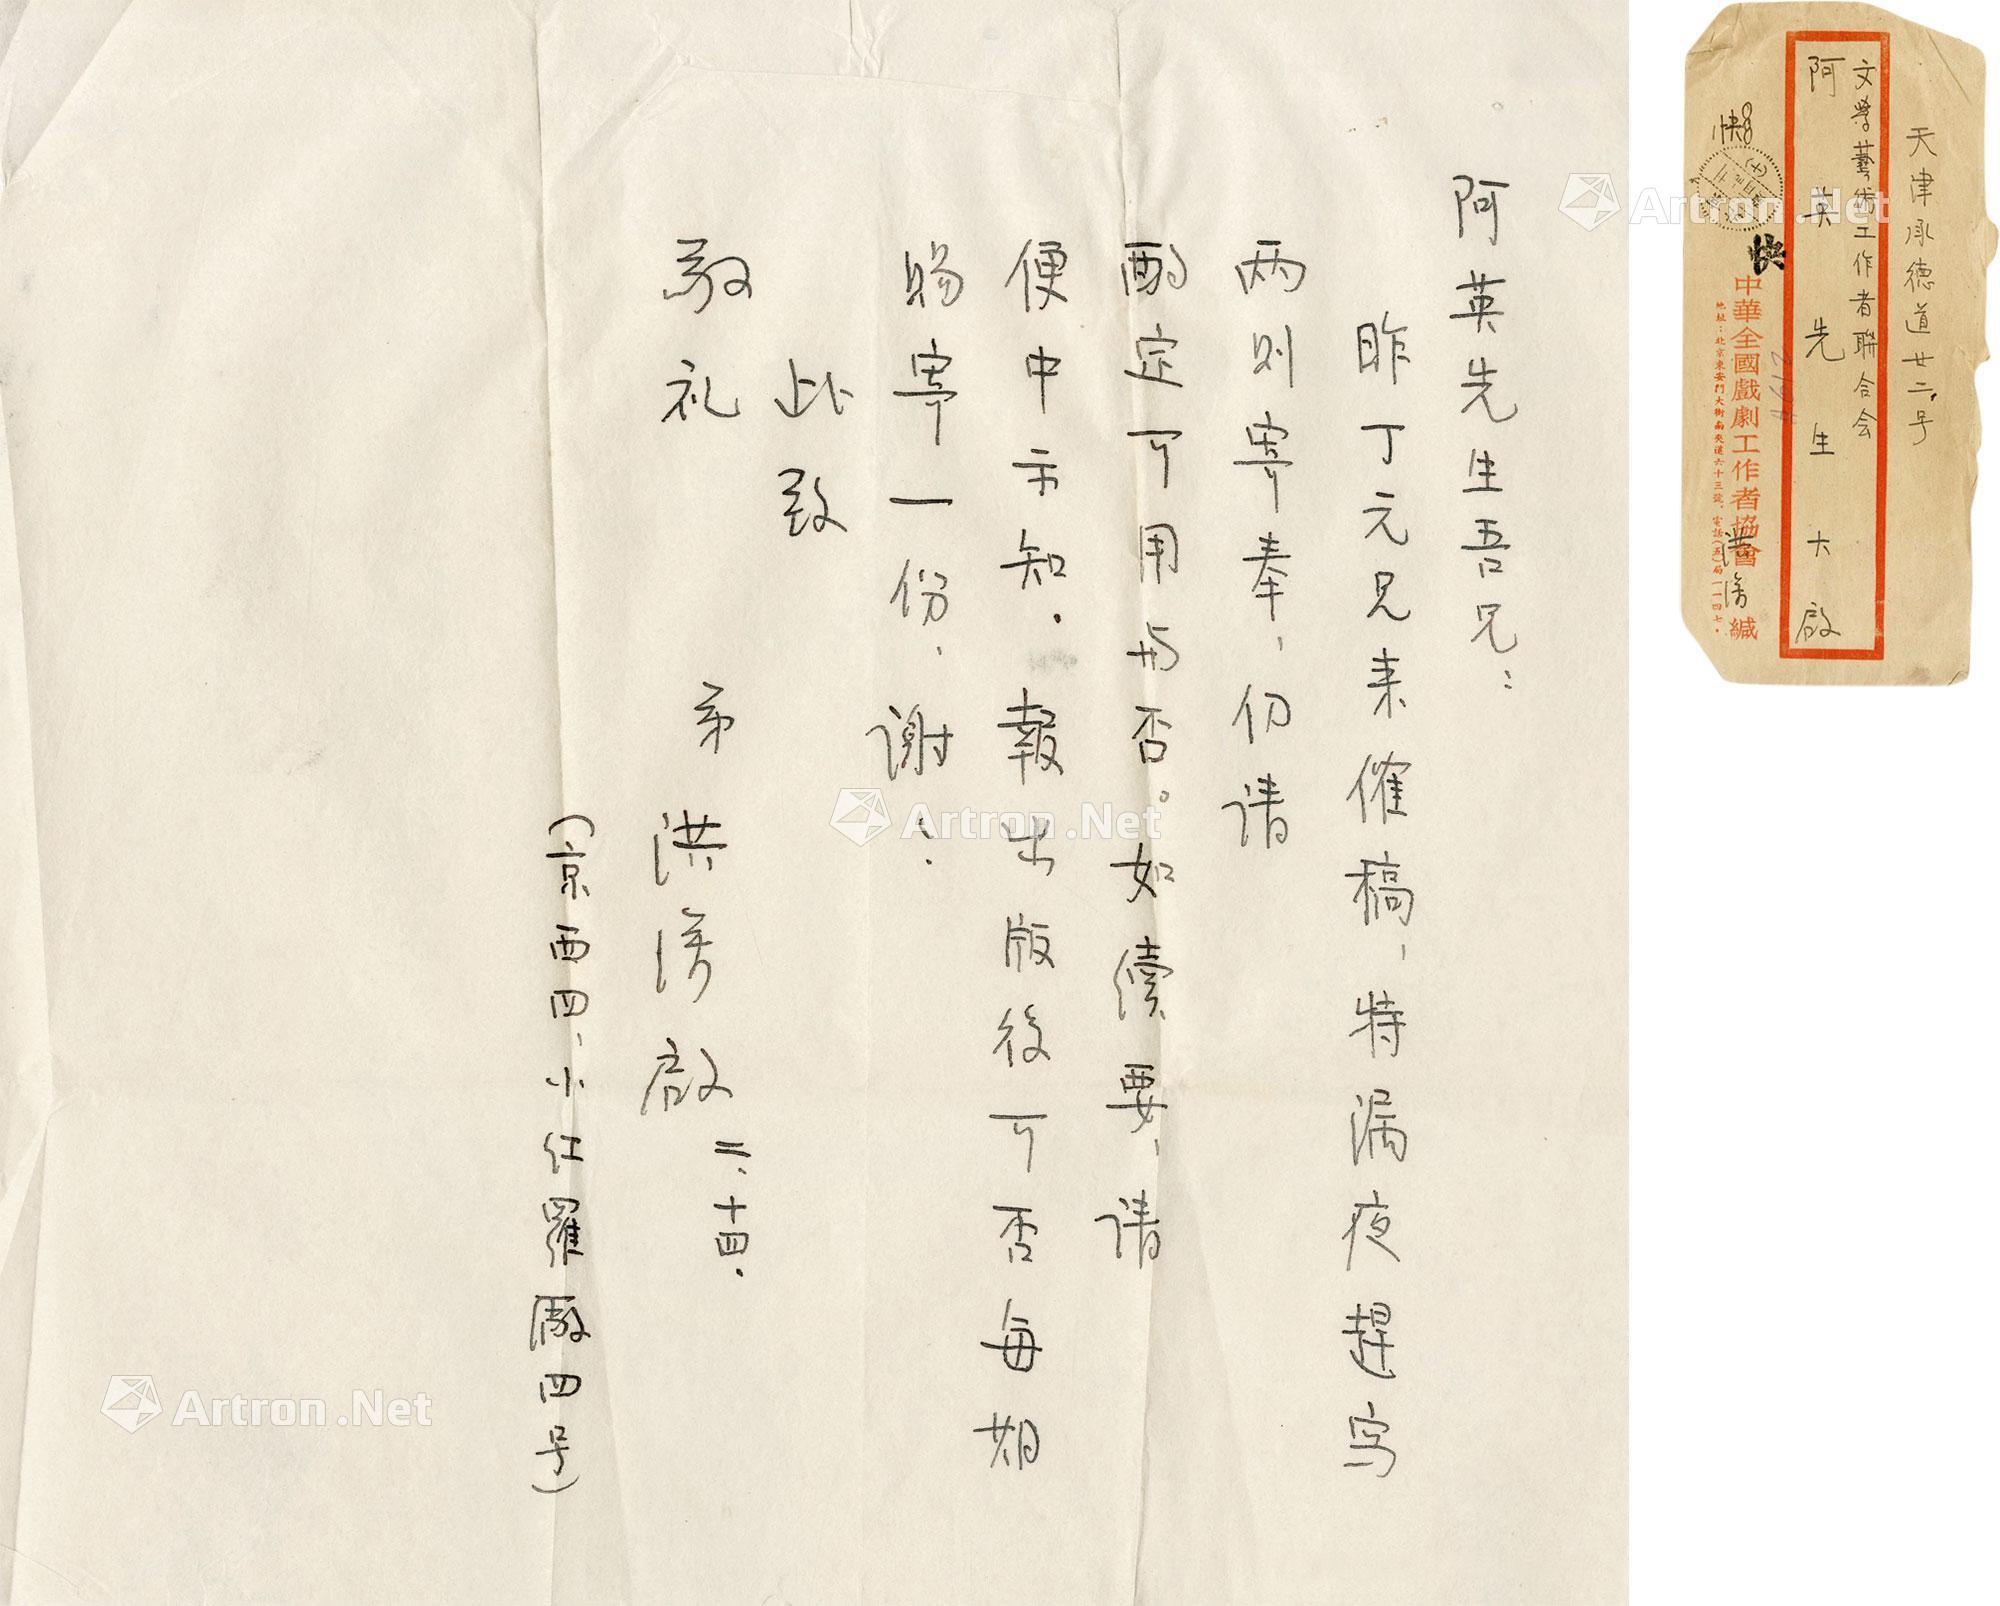 阿英先生吾兄：
昨丁元兄来催稿、特漏夜趕写
两则寄奉、仍请
酌定可用与否。如续要、请
便中示知．報出版後可否每期
赐寄一份、谢：
此致
敬礼
弟 洪深啟 二、十四．
（京西四、小红羅廠四号）
天津承德道廿二号
文學藝術工作者聯合会
阿英先生大啟
快
快
中華全國戲劇工作者協會 緘
洪深
地址：北京東安門大街南夾道六十三號．電話（五）局一一四七．
Artron.Net
Artron.Net
Artron.Net